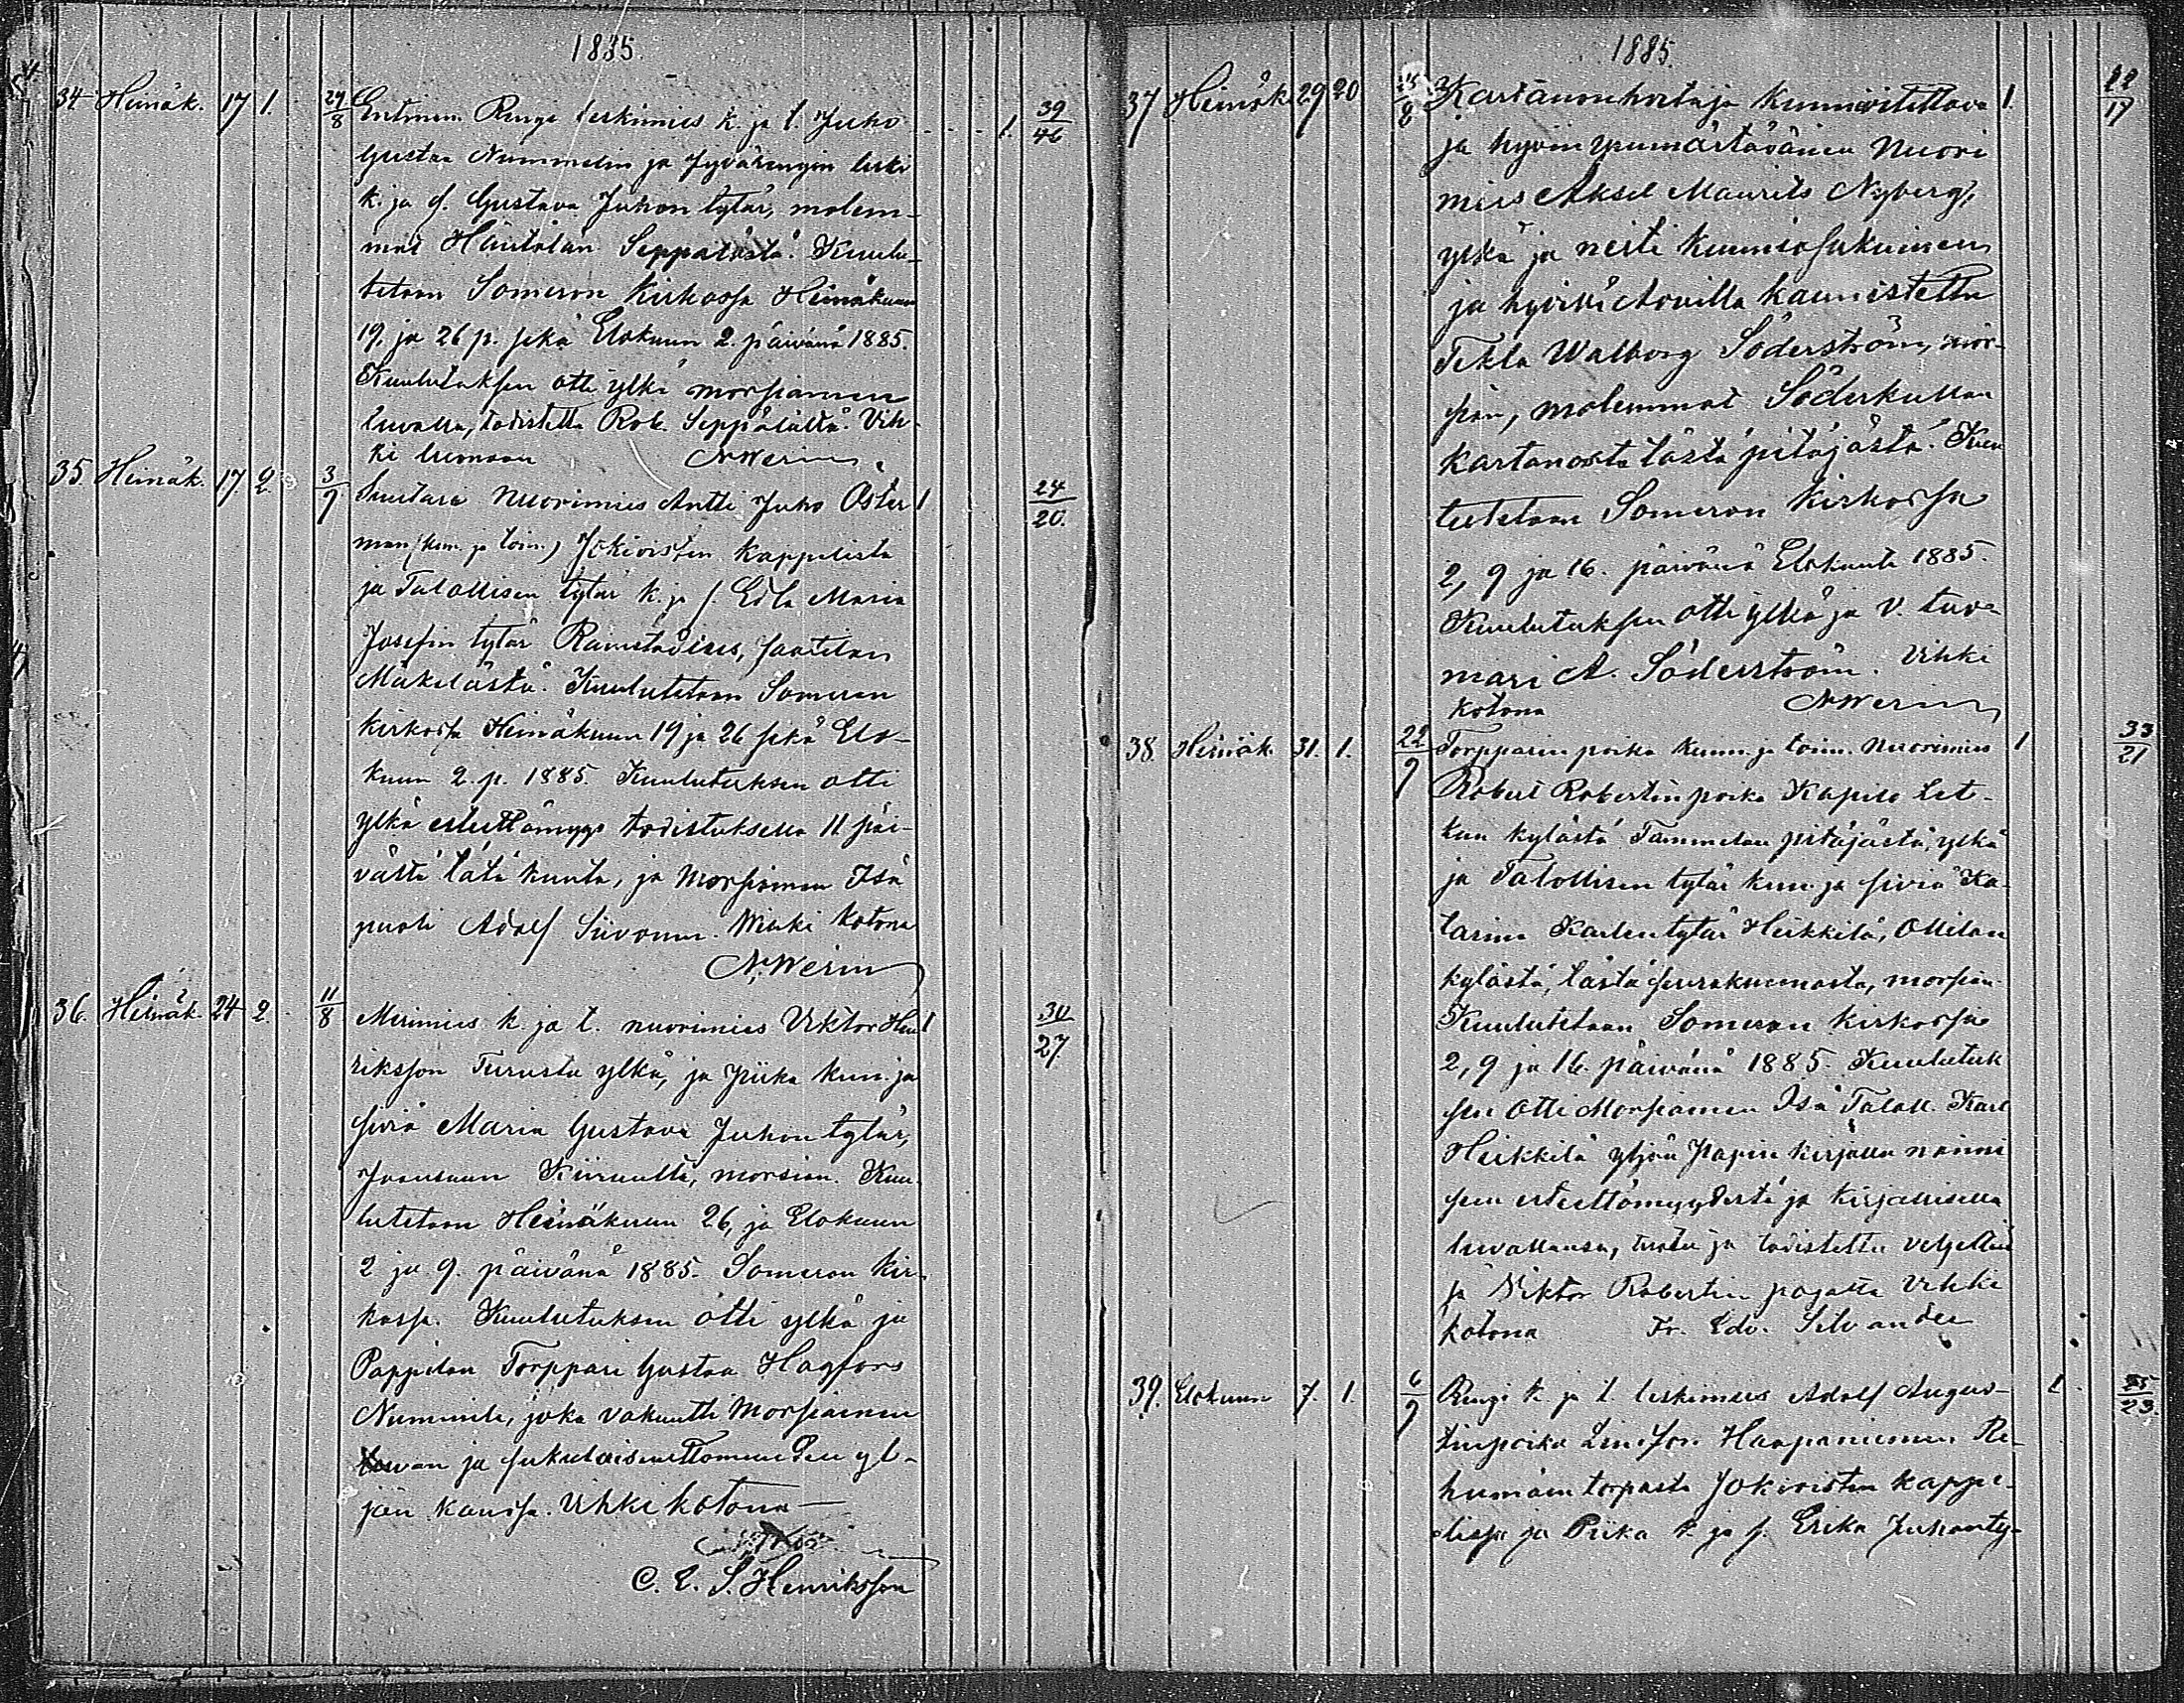 1885.
34 Heinäk. 17 1. 29/8 Entinen Rengi leskimies k. ja t. Juho 1. 39/46
Gustaa Nummelin ja Jyvärengin leski
k. ja s. Gustava Juhon tytär, molem-
mat Häntälän Seppälästä. Kuulu-
tetaan Someron kirkossa Heinäkuun
19, ja 26 p. sekä Elokuun 2. päivänä 1885.
Kuulutuksen otti ylkä morsiamen
luvalla, todistettu Rob. Seppälältä. Vih-
ki luonaan N Werin
35. Heinäk. 17. 2. 3/9 Suutari Nuorimies Antti Juho Öster 1 24/20.
man (kun. ja toim.) Jokivisten kappelista
ja Talollisen tytär k. ja s. Edla Maria
Josefin tytär
Mäkelästä. Kuulutetaan Someron
kirkossa Heinäkuun 19 ja 26 sekä Elo-
kuun 2. p. 1885. Kuulutuksen otti
ylkä esteettömyys todistuksella 11 päi-
vältä tätä kuuta, ja Morsiamen Isä
puoli Adolf Siivonen. Wihki kotona
N. Werin
36. Heinäk. 24 2. 11/8 Merimies k. ja t. nuorimies Viktor Hen 1 30/27
riksson Turusta ylkä, ja Piika kun. ja
siviä Maria Gustava Juhon tytär,
Joensuun Kiiruulta, morsian. Kuu-
lutetaan Heinäkuun 26, ja Elokuun
2 ja 9. päivänä 1885. Someron kir-
kossa. Kuulutuksen otti ylkä ja
Pappilan Torppari Gustaa Hagfors
Nummela, joka vakuutti Morsiamen
luvan ja sukulaisuettomuuden yl-
jän kanssa. Vihki kotona —
C. E. S. Henriksson
1885.
37 Heinäk 29 20 Kartanonhoitaja kunnioitettava 1. 22/17
ja hyvin ymmärtäväinen Nuori
mies Aksel Maurits Nyberg,
ylkä ja neiti kunniasukuinen
ja hyvillä Avuilla kaunistettu
Tekla Walborg Söderström, mor-
sian, molemmat Söderkullan
kartanosta tästä pitäjästä. Kuu
lutetaan Someron kirkossa
2, 9 ja 16. päivänä Elokuuta 1885.
Kuulutuksen otti ylkä ja v. tuo-
mari A. Söderström. Vihki
kotona N Werin
38. Heinäk. 31. 1. 22/9 Torpparin poika kunn. ja toim. Nuorimies 1 33/21
Robert Robertin poika Kapila Let-
kun kylästä Tammelan pitäjästä, ylkä
ja Talollisen tytär kun. ja siviä Ka-
tarina Kaarlen tytär Heikkilä, Ollilan
kylästä, tästä seurakunnasta, morsian.
Kuulutetaan Someron kirkossa
2, 9 ja 16. päivänä 1885. Kuulutuk
sen otti Morsiamen Isä Talall. Karl
Heikkilä yljän Papin kirjalla naimi
sen esteettömyydestä ja kirjallisella
luvallansa, tuotu ja todistettu veljeltän
ja Viktor Robertin pojalta Vihki
kotona Fr. Edv. Silvander
39. Elokuun 7. 1. 6/9 Rengi k. ja t. leskimies Adolf Augus- 1. 25/23.
tinpoika Lindfors Haapaniemen Re-
humäen torpasta Jokivisten kappe-
lissa ja Piika k. ja s. Erika Juhonty-